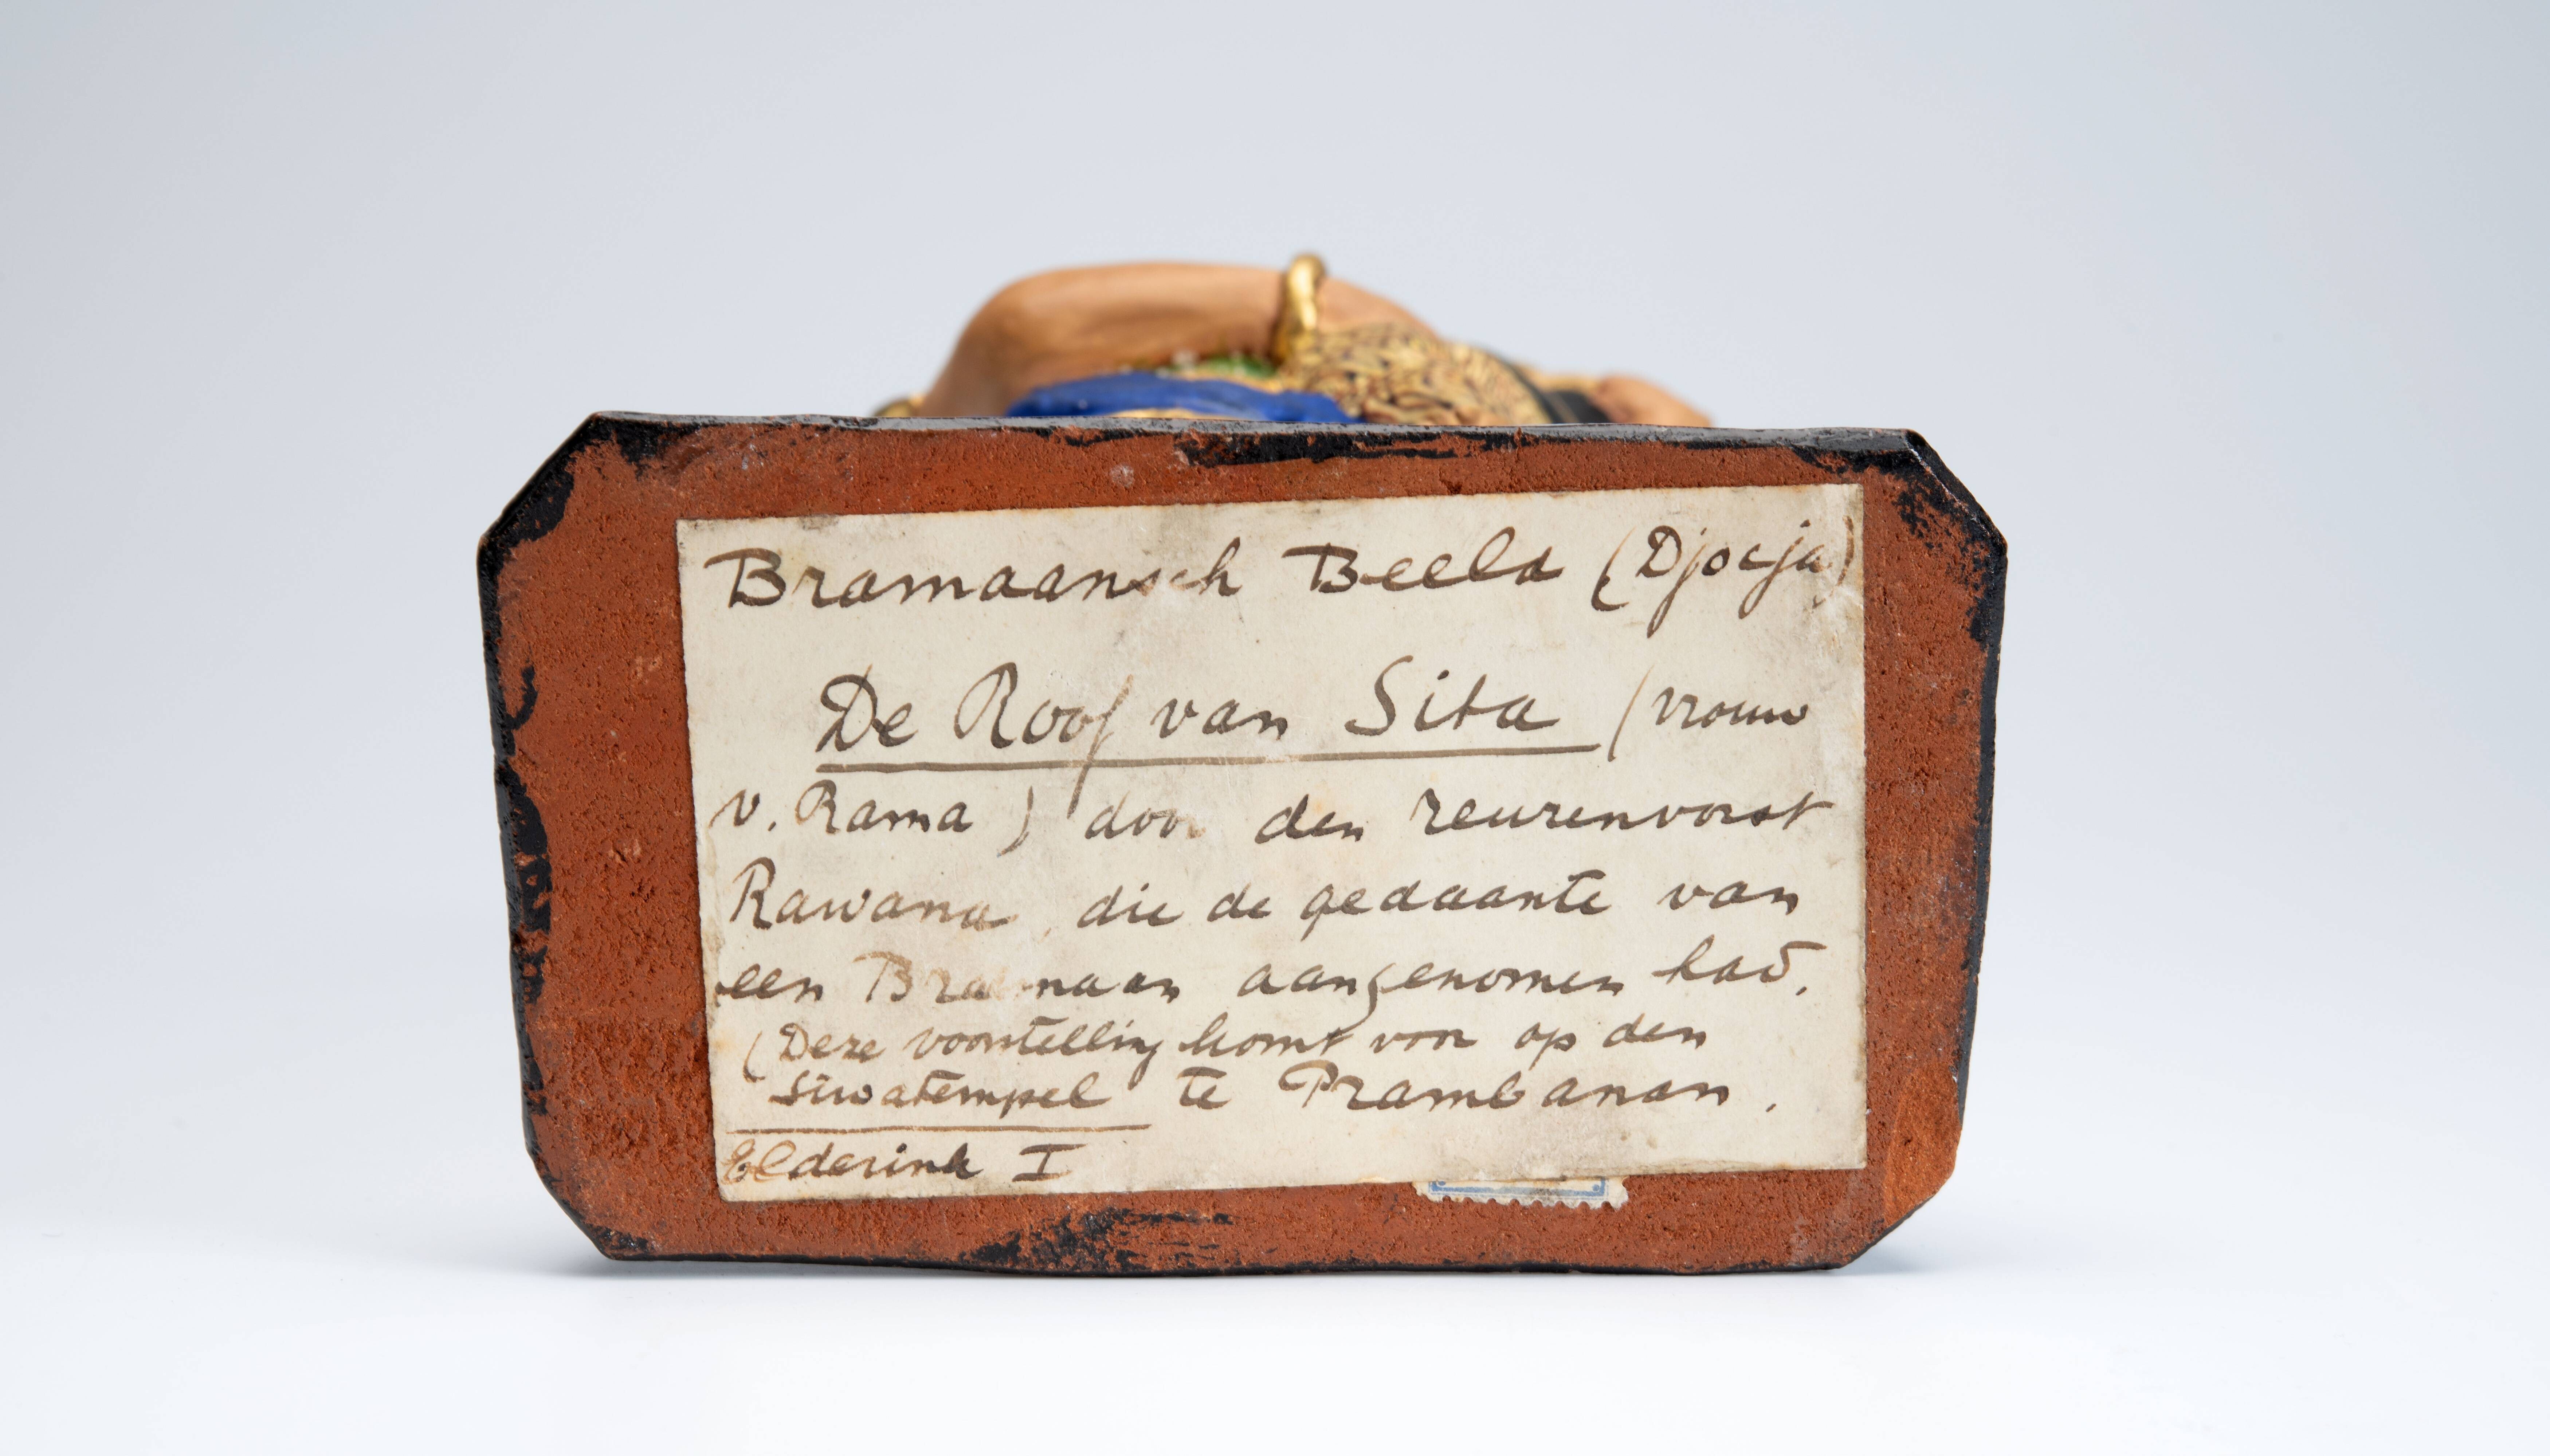 Bramaansch Beeld (Djocja)
De Roof van Sita (vrouw
v. Rama) door den reuzenvorst
Rawana, die de gedaante van
een Bramaan aangenomen had.
(Deze voorstelling komt voor op den
Siwatempel te Prambanan.
Elderink I